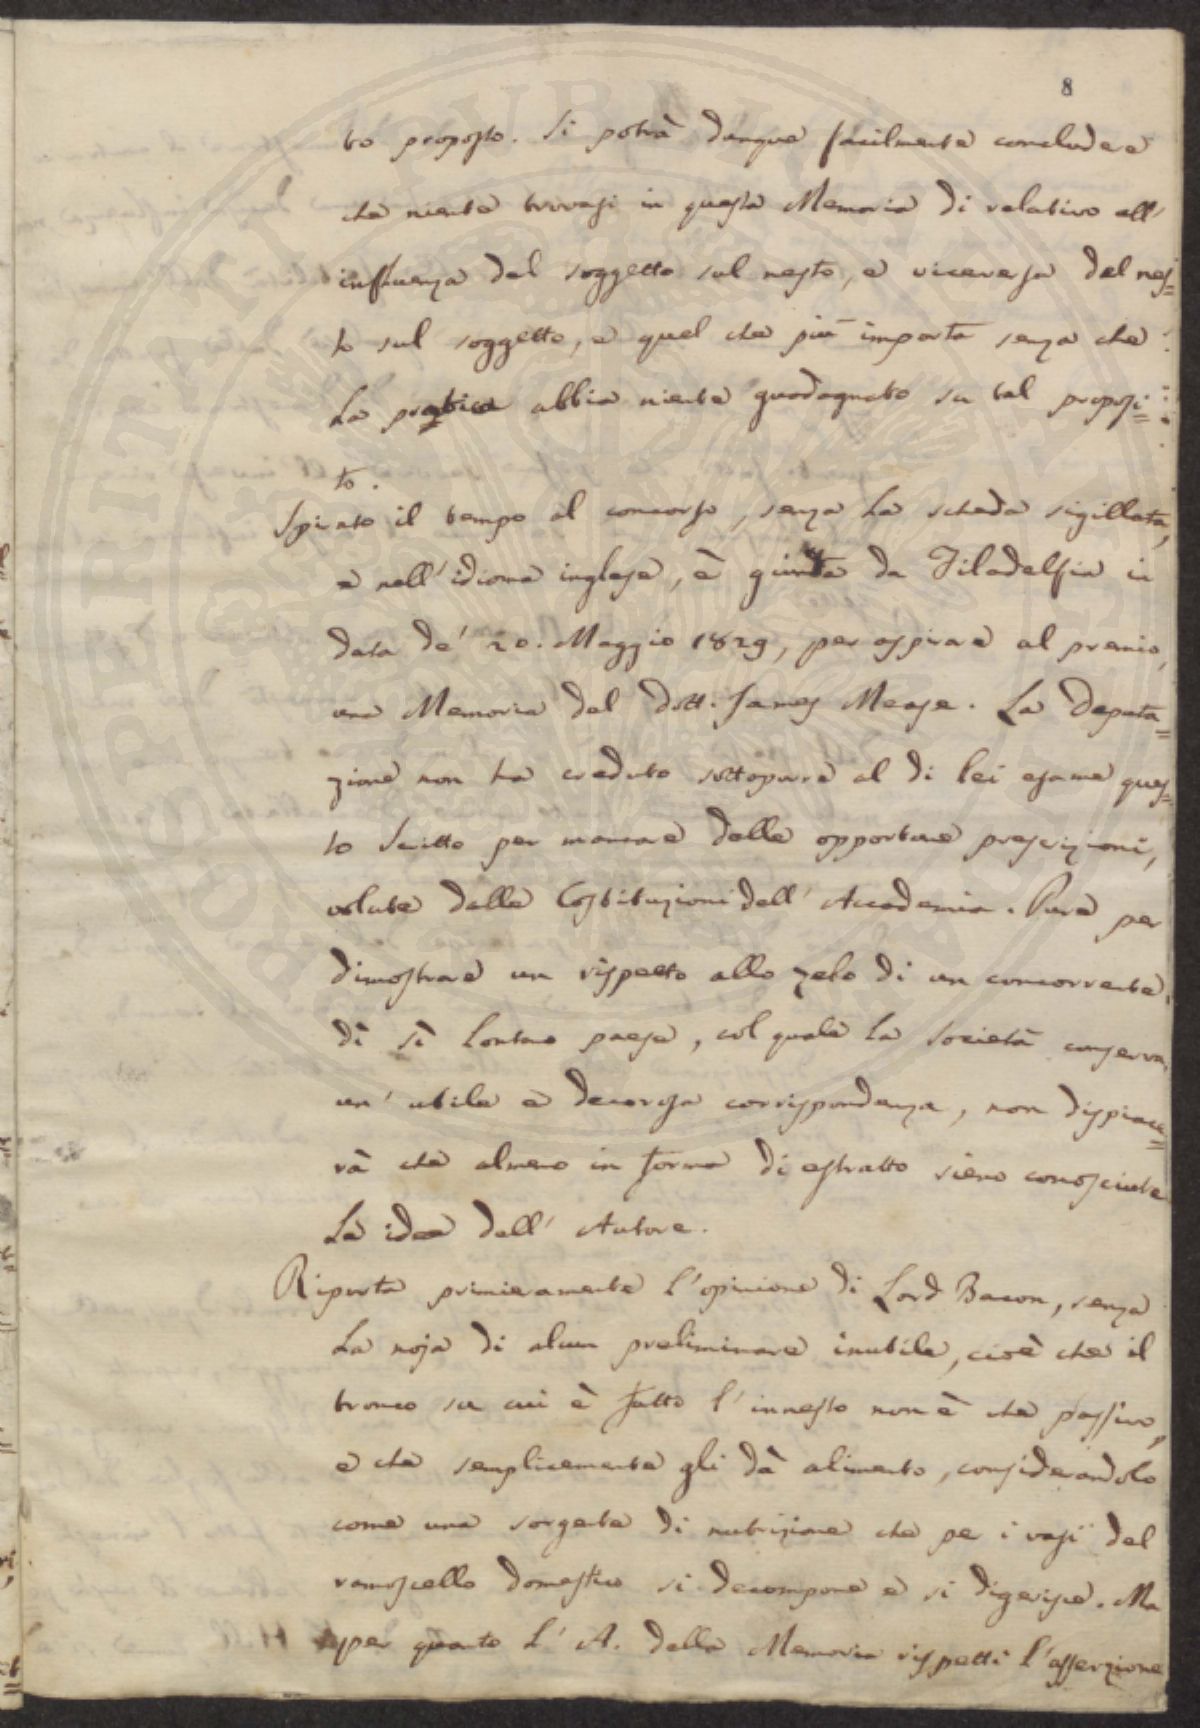 8
to proposto. Si potrà dunque facilmente concludere
che niente trovasi in questa Memoria di relativo all'
influenza del soggetto sul nesto, e viceversa del nes=
to sul soggetto, e quel che più importa senza che
la pratica abbia niente guadagnato su tal proposi=
to.
Spirato il tempo al concorso, senza la scheda sigillata,
e nell'idioma inglese, è giunta da Filadelfia in
data de' 20. Maggio 1829, per aspirare al premio,
una Memoria del Dott. James Mease. La Deputa=
zione non ha creduto sottoporre al di lei esame ques=
to scritto per mancare delle opportune prescrizioni,
volute dalle Costituzioni dell'Accademia. Pure per
dimostrare un rispetto allo zelo di un concorrente
di sì lontano paese, col quale la Società conserva
un'utile e decorosa corrispondenza, non dispiace=
rà che almeno in forma di estratto sieno conosciute
le idee dell'Autore.
Riporta primieramente l'opinione di Lord Bacon, senza
la noja di alcun preliminare inutile, cioè che il
tronco su cui è fatto l'innesto non è che passivo,
e che semplicemente gli dà alimento, considerandolo
come una sorgente di nutrizione che per i vasi del
ramoscello domestico si decompone e si digerisce. Ma
per quanto l'A. della Memoria rispetti l'asserzione